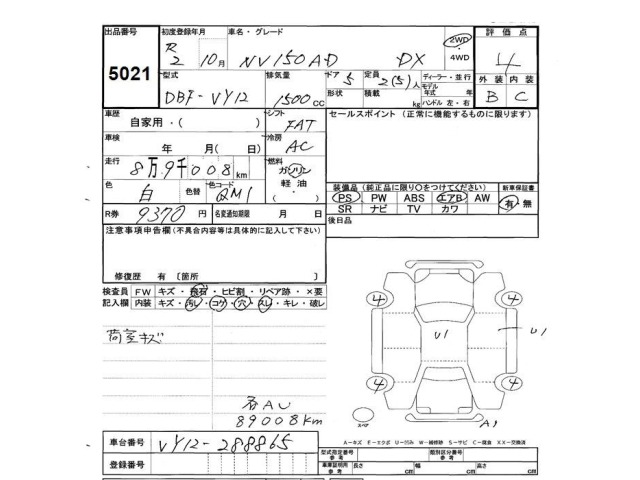 出品番号 5021
初度登録年月 R2 10月
車名・グレード NV150AD DX
2WD・4WD
評価点 4
型式 DBF-VY12
排気量 1500cc
ドア 5 形状
定員 2(5)人 積載 kg
ディーラー・並行
モデル年式 年
ハンドル 左・右
外装 B 内装 C
車歴 自家用・( )
シフト FAT
セールスポイント (正常に機能するものに限ります)
車検 年 月( 日)
冷房 AC
走行 8万9千008km
燃料 ガソリン 軽油・
色 白 色替 色コード QM1
装備品(純正品に限り○をつけてください)
新車保証書
PS PW ABS エアB AW
SR ナビ TV カワ
有・無
R券 9370円 名変通知期限 月 日
後日品
注意事項申告欄(不具合内容等は具体的に記入して下さい)
修復歴 有〔箇所 〕
検査員記入欄
FW キズ・飛石・ヒビ割・リペア跡・×要
内装 キズ・汚レ・コゲ・穴・スレ・キレ・破レ
荷室キズ
各AU
89008km
4 4
U1 U1
4 4
スペア
A1
A-キズ E-エクボ U-凹み W-補修跡 S-サビ C-腐食 XX-交換済
車台番号 VY12-288865
登録番号
型式指定番号参考
類別区分番号参考
車庫証明用参考 長さ cm 幅 cm 高さ cm